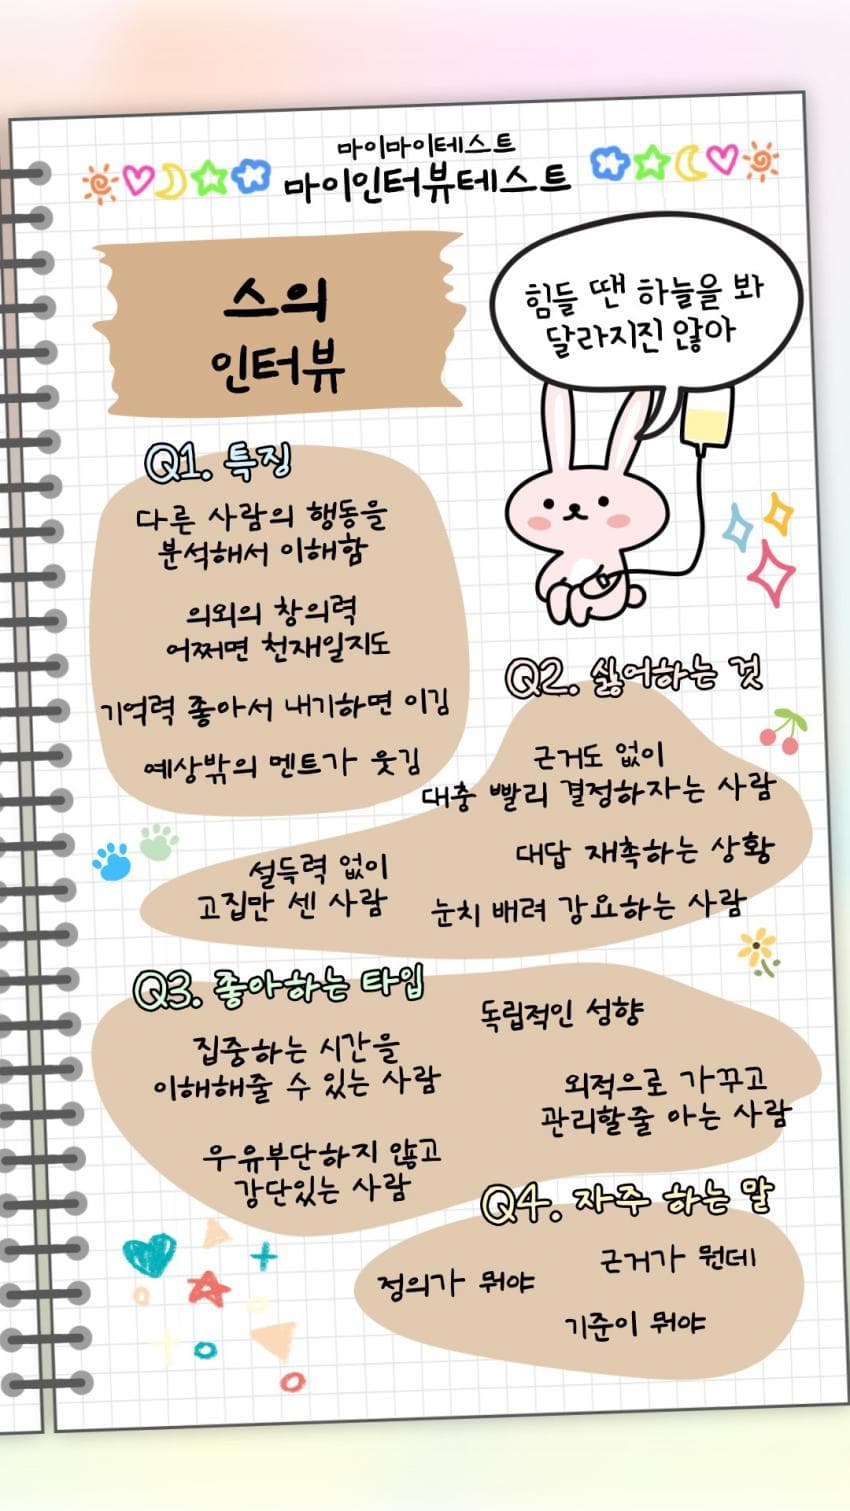 마이마이테스트
마이인터뷰테스트
스의
인터뷰
힘들 땐 하늘을 봐
달라지진 않아
Q1. 특징
다른 사람의 행동을
분석해서 이해함
의외의 창의력
어쩌면 천재일지도
기억력 좋아서 내기하면 이김
예상밖의 멘트가 웃김
Q2. 싫어하는 것
근거도 없이
대충 빨리 결정하자는 사람
대답 재촉하는 상황
설득력 없이
고집만 센 사람
눈치 배려 강요하는 사람
Q3. 좋아하는 타입
독립적인 성향
집중하는 시간을
이해해줄 수 있는 사람
외적으로 가꾸고
관리할줄 아는 사람
우유부단하지 않고
강단있는 사람
Q4. 자주 하는 말
근거가 뭔데
정의가 뭐야
기준이 뭐야